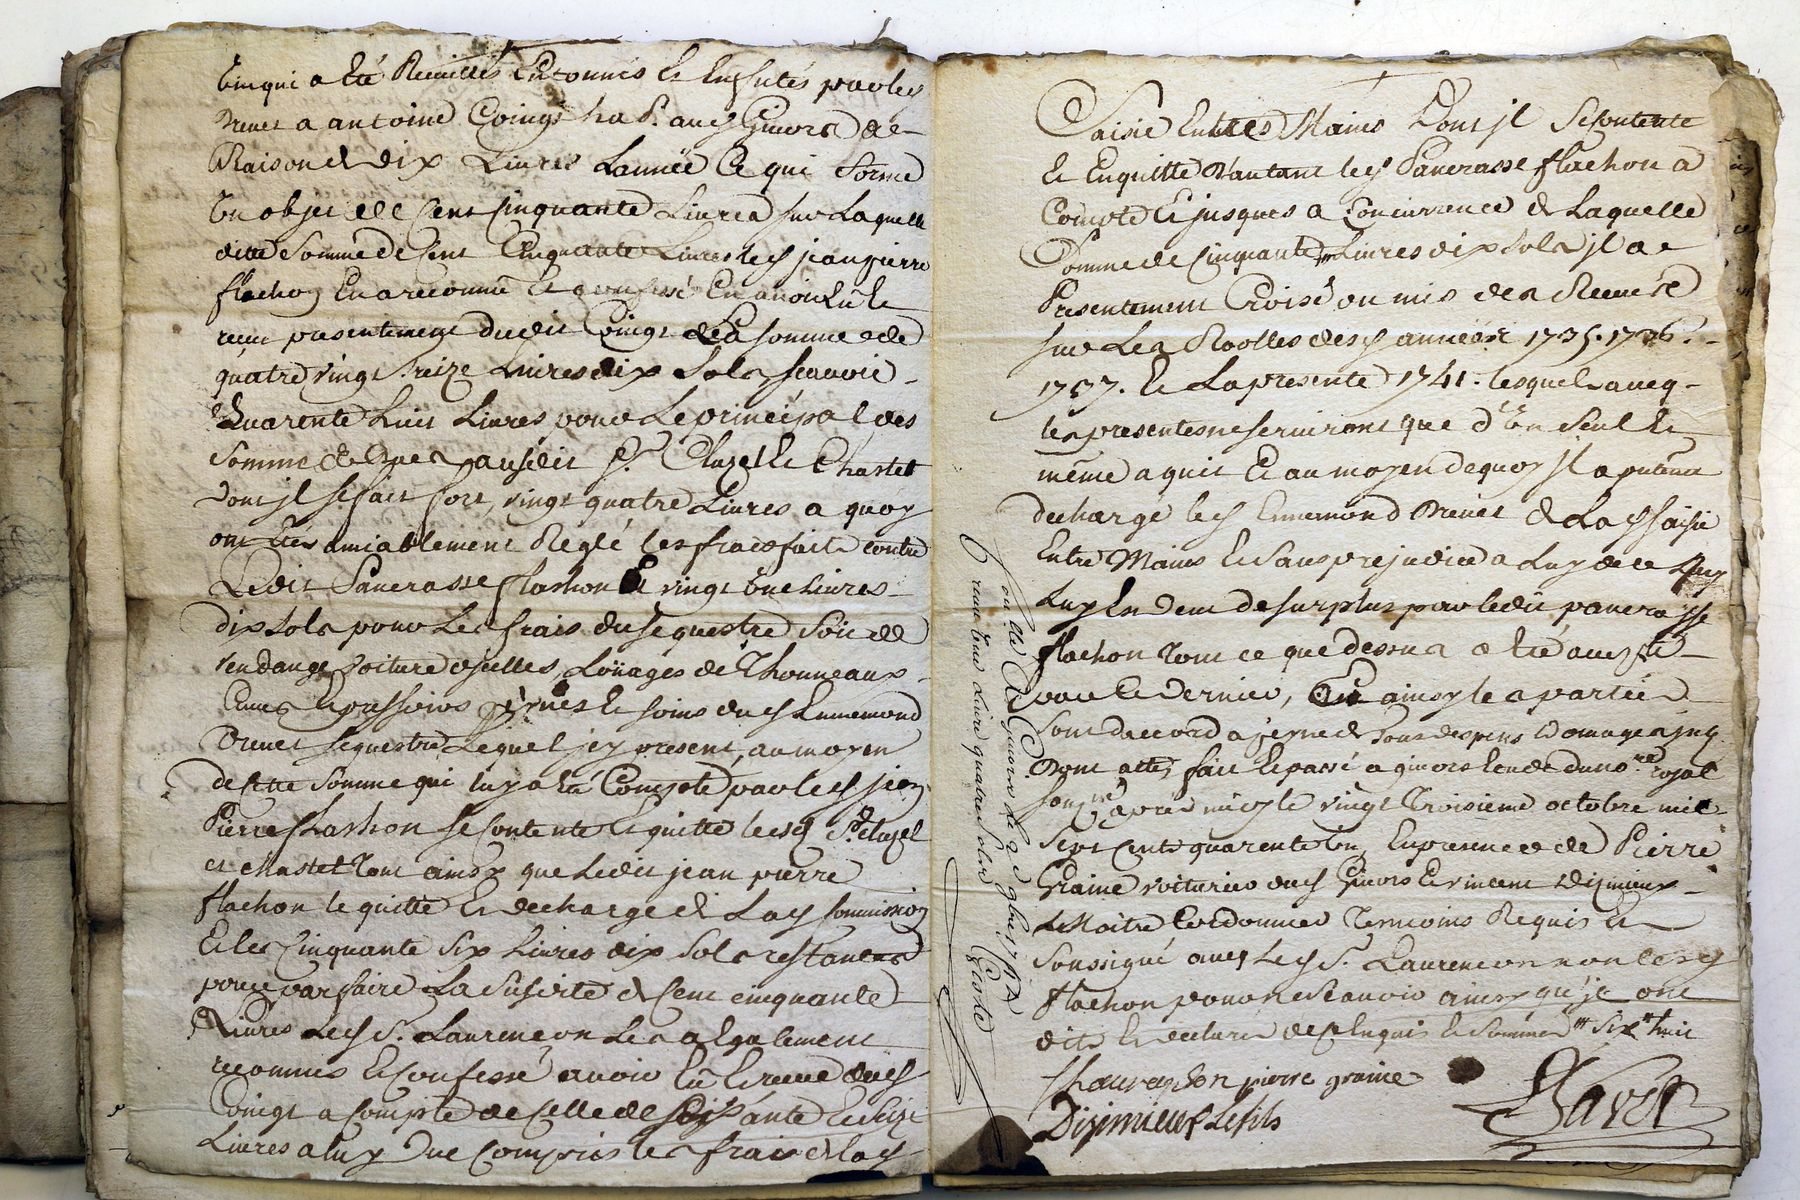 vin qui a été Receuillis Entonnis et Enfutés par les
Drevet a antoine Coingt hab. audt Givors a
Raison de dix Livres L'année Ce qui forme
Un objet de Cent Cinquante Livres sur Laquelle
ditte Somme de Cent Cinquante Livres led jean pierre
flachon En a reconnu et confessé En avoir Eû et
reçue presentement dudit Coingt de La somme de
quatre vingt treize Livres dix Sols scavoir
Quarente huit Livres pour Le principal des
Somme düe ausdit Sr. Cluzel et Chastet
dont jl se fait fort, vingt quatre Livres a quoy
ont étés amiablement Reglé les frais faits contre
Ledit Pancrasse flachon Et vingt Une Livres
Dix Sols pour Les frais du Sequestre Soit de
vendange voiture d'jcelles, Loüages de Thonneaux
Cuves Et pressoirs peynes Et soins dud Ennemond
Drevet sequestre Lequel jcy present, au moyen
de cette Somme qui luy a été Compté par led jean
Pierre flachon se Contente Et quitte lesd Srs Cluzel
et Chastet Tout ainsy que Ledit jean pierre
flachon le quitte Et decharge de Lad Commission
Et les Cinquante Six Livres dix Sols restantes
pour parfaire La Susdite de Cent cinquante
Livres Led S. Laurençon Les a Egalement
reconnus Et Confessé avoir Eû Et receu dud
Coingt a Compte de Celle de Soixante Et Seize
Livres a luy Due Compris les frais de lad
Saisie Entre Mains Dont jl Se Contente
Et En quitte D'autant led Pancrasse flachon a
Compte Et jusques a Concurrence de Laquelle
Somme de Cinquante six Livres dix Sols jl a
Presentement Croisé ou mis des Receu
sur Les Roolles desd années 1735. 1736.
1737. Et La presente 1741. lesquels avecq
les presentes ne serviront que d'Un Seul Et
même aquit Et au moyen de quoy jl a
decharge led Ennemond Drevet de Lad Saisie
Entre Mains Et Sans prejudice a Luy de ce
Luy En Deu de surplus par ledit pancrasse
flachon Tout ce que dessus a été
par Ce dernier, Et ainsy les parties
Sont d'accord a peyne de Tous despens Domages jnt
Dont acte, fait Et passé a givors Etude du no.re royal
Sous.né après midy le vingt Troisieme octobre mil
Sept Cents quarente Un, En presence de Pierre
Graine voiturier dud Givors Et vincent Dijimieux
Le Maitre Cordonnier Temoins Requis Et
Soussigné avec Led S. Laurençon non led
flachon pour ne Scavoir ainsy qu'jl ont
dits Et declarés de ce Enquis Et Sommés
pierre graine
Dijimieux Le fils
Con.lé A Givors le 2e 9bre 1741
reçu Une Livre quatre Sols Coste